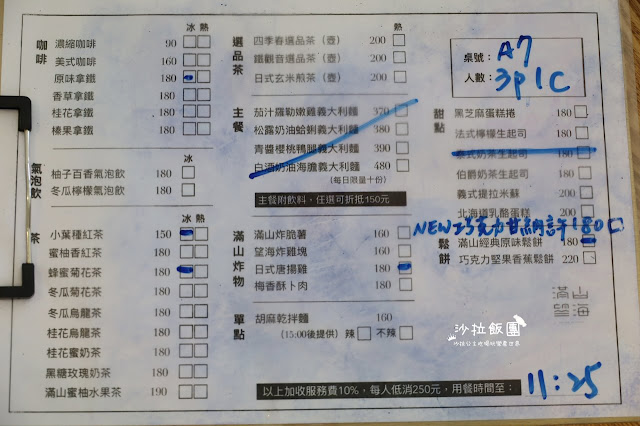 咖啡
冰 熱
濃縮咖啡 90
美式咖啡 160
原味拿鐵 180
香草拿鐵 180
桂花拿鐵 180
榛果拿鐵 180
氣泡飲
冰
柚子百香氣泡飲 180
冬瓜檸檬氣泡飲 180
茶
冰 熱
小葉種紅茶 150
蜜柚香紅茶 180
蜂蜜菊花茶 180
冬瓜菊花茶 180
冬瓜烏龍茶 180
桂花烏龍茶 180
桂花蜜奶茶 180
黑糖玫瑰奶茶 180
滿山蜜柚水果茶 190
選品茶
熱
四季春選品茶(壺) 200
鐵觀音選品茶(壺) 200
日式玄米煎茶(壺) 200
主餐
茄汁羅勒嫩雞義大利麵 370
松露奶油蛤蜊義大利麵 380
青醬櫻桃鴨腿義大利麵 390
白酒奶油海膽義大利麵 480
(每日限量十份)
主餐附飲料,任選可折抵150元
滿山炸物
滿山炸脆薯 160
望海炸雞塊 180
日式唐揚雞 180
梅香酥卜肉 180
單點
胡麻乾拌麵 160
(15:00後提供) 辣 不辣
桌號: A7
人數: 3p1C
甜點
黑芝麻蛋糕捲 180
法式檸檬生起司 180
泰式奶茶生起司 180
伯爵奶茶生起司 180
義式提拉米蘇 180
北海道乳酪蛋糕 180
NEW巧克力甘納許180
鬆餅
滿山經典原味鬆餅 180
巧克力堅果香蕉鬆餅 220
滿山望海
沙拉飯團
以上加收服務費10%,每人低消250元,用餐時間至: 11:25